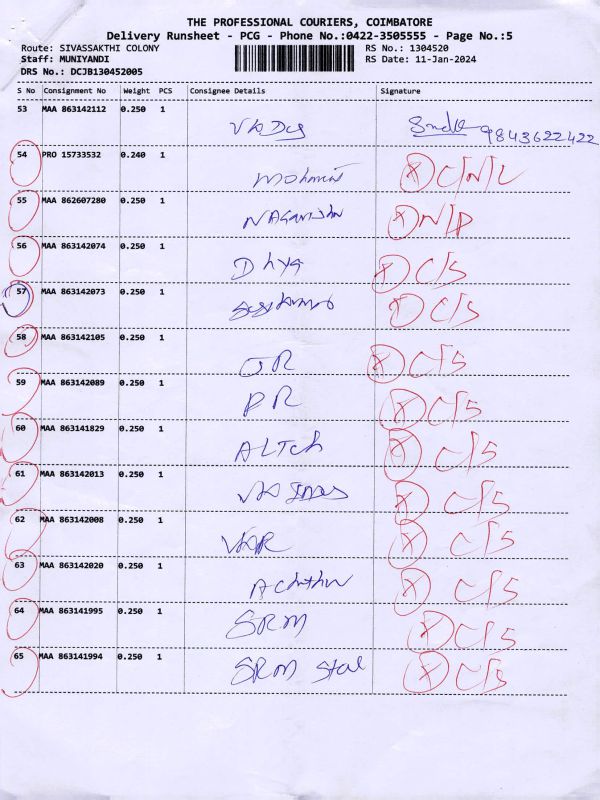 THE PROFESSIONAL COURIERS, COIMBATORE
Delivery Runsheet - PCG - Phone No.:0422-3505555 - Page No.:5
Route: SIVASSAKTHI COLONY RS No.: 1304520
Staff: MUNIYANDI RS Date: 11-Jan-2024
DRS No.: DCJB130452005
S No Consignment No Weight PCS Consignee Details Signature
53 MAA 863142112 0.250 1 9843622422
54 PRO 15733532 0.240 1 X C/N/L
55 MAA 862607280 0.250 1 X N/P
56 MAA 863142074 0.250 1 Dhya X C/S
57 MAA 863142073 0.250 1 X C/S
58 MAA 863142105 0.250 1 JR X C/S
59 MAA 863142089 0.250 1 PR X C/S
60 MAA 863141829 0.250 1 ALTch X C/S
61 MAA 863142013 0.250 1 X C/S
62 MAA 863142008 0.250 1 VKR X C/S
63 MAA 863142020 0.250 1 X C/S
64 MAA 863141995 0.250 1 SRM X C/S
65 MAA 863141994 0.250 1 SRM Stal X C/S